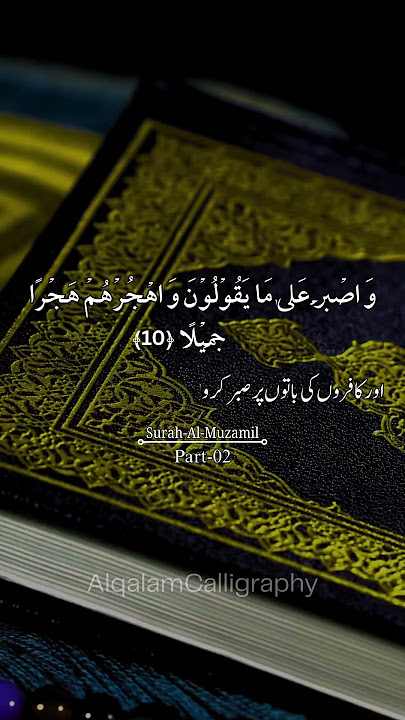 وَ اصۡبِرۡ عَلٰی مَا یَقُوۡلُوۡنَ وَ اہۡجُرۡہُمۡ ہَجۡرًا
جَمِیۡلًا ﴿10﴾
اور کافروں کی باتوں پر صبر کرو
Surah-Al-Muzamil
Part-02
AlqalamCalligraphy